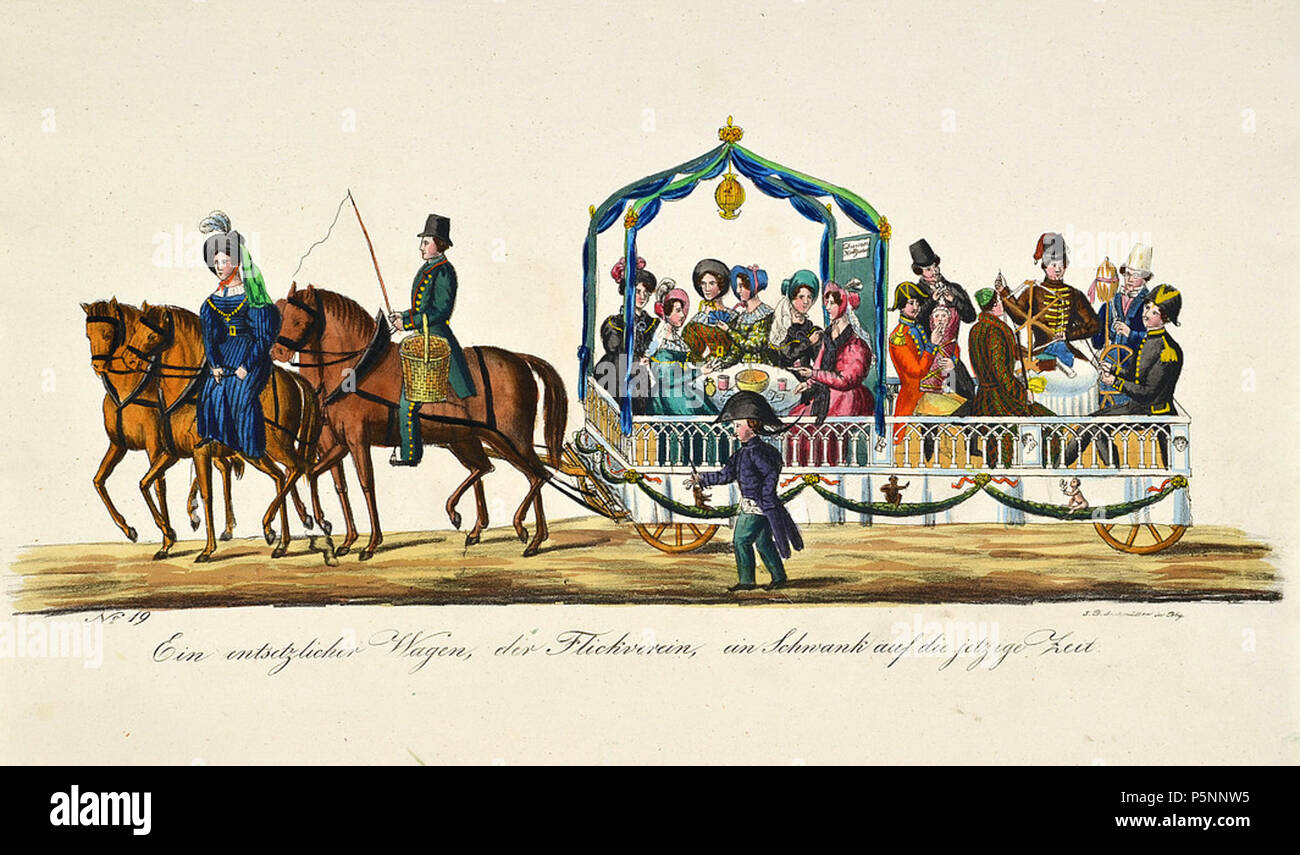 No 19
Ein entsetzlicher Wagen, der Flickverein, ein Schwank auf die jetzige Zeit.
a
alamy
alamy
Image ID: P5NNW5
www.alamy.com